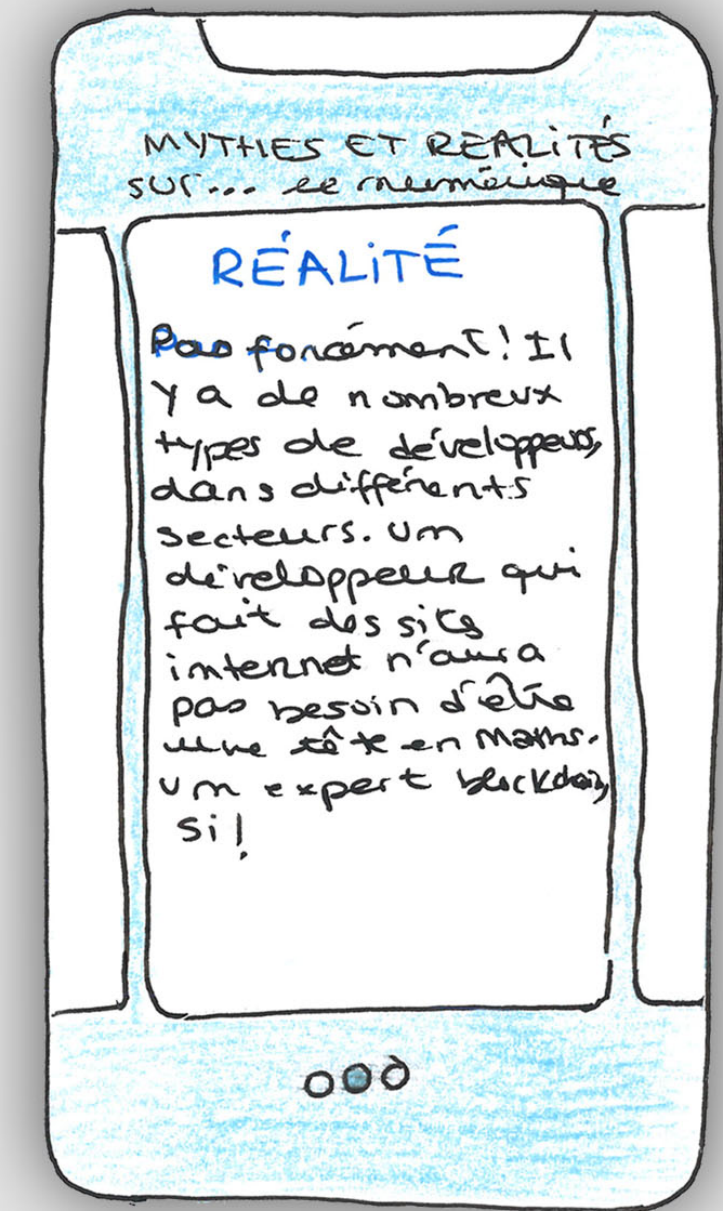 MYTHES ET RÉALITÉS
sur... le numérique
RÉALITÉ
Pas forcément! Il
y a de nombreux
types de développeurs,
dans différents
secteurs. Un
développeur qui
fait des sites
internet n'aura
pas besoin d'être
une tête en maths.
Un expert blockchain,
si!